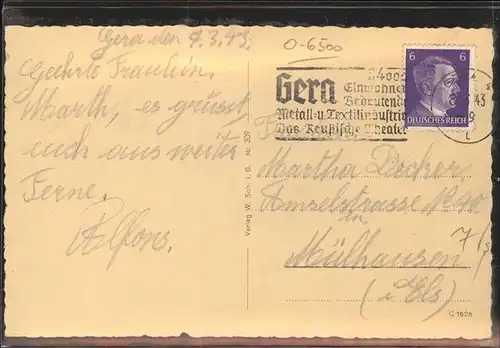 Gera den 7.3.43.
Geehrte Fräulein.
Marth, es grüsst
euch aus weiter
Ferne.
Alfons.
O-6500
Gera
Einwohner
Bedeutende
Metall-u.Textilindustrie
Das Reußische Theater
6 6
DEUTSCHES REICH
43
Martha Decker
Amselstrasse No 90
in
Mülhausen
(i Els)
Verlag W. Sch. i. G. Nr. 309
C 1626